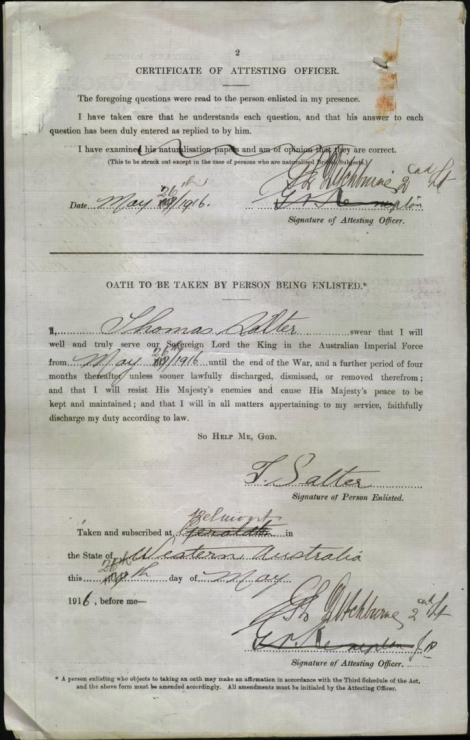 2
CERTIFICATE OF ATTESTING OFFICER.
The foregoing questions were read to the person enlisted in my presence.
I have taken care that he understands each question, and that his answer to each
question has been duly entered as replied to by him.
I have examined his naturalisation papers and am of opinion that they are correct.
(This to be struck out except in the case of persons who are naturalised British Subjects.)
2nd Lt
Date May 26th /1916.
Signature of Attesting Officer.
OATH TO BE TAKEN BY PERSON BEING ENLISTED.*
I, Thomas Salter swear that I will
well and truly serve our Sovereign Lord the King in the Australian Imperial Force
from May 26th /1916 until the end of the War, and a further period of four
months thereafter unless sooner lawfully discharged, dismissed, or removed therefrom;
and that I will resist His Majesty's enemies and cause His Majesty's peace to be
kept and maintained; and that I will in all matters appertaining to my service, faithfully
discharge my duty according to law.
SO HELP ME, GOD.
T. Salter
Signature of Person Enlisted.
Belmont
Taken and subscribed at Geraldton in
the State of Western Australia
26th
this day of May
1916, before me—
2nd Lt
J.P.
Signature of Attesting Officer.
* A person enlisting who objects to taking an oath may make an affirmation in accordance with the Third Schedule of the Act,
and the above form must be amended accordingly. All amendments must be initialed by the Attesting Officer.